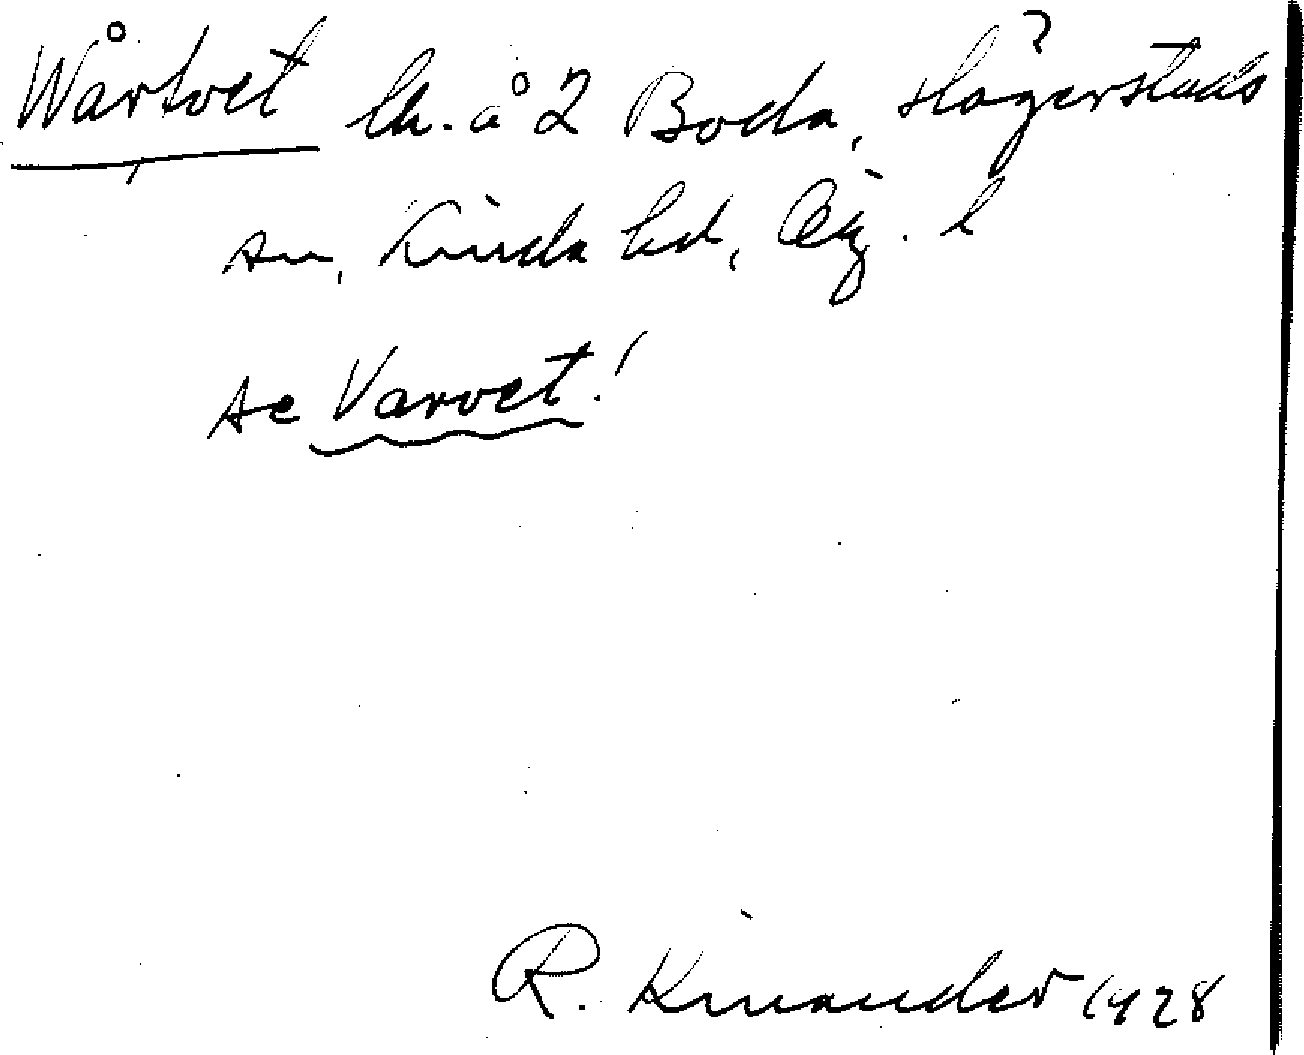 Wårtvet lh. å 2 Boda, Hägerstads
sn, Kinda hd, Ög. l
se Varvet!
R. Kinander 1928